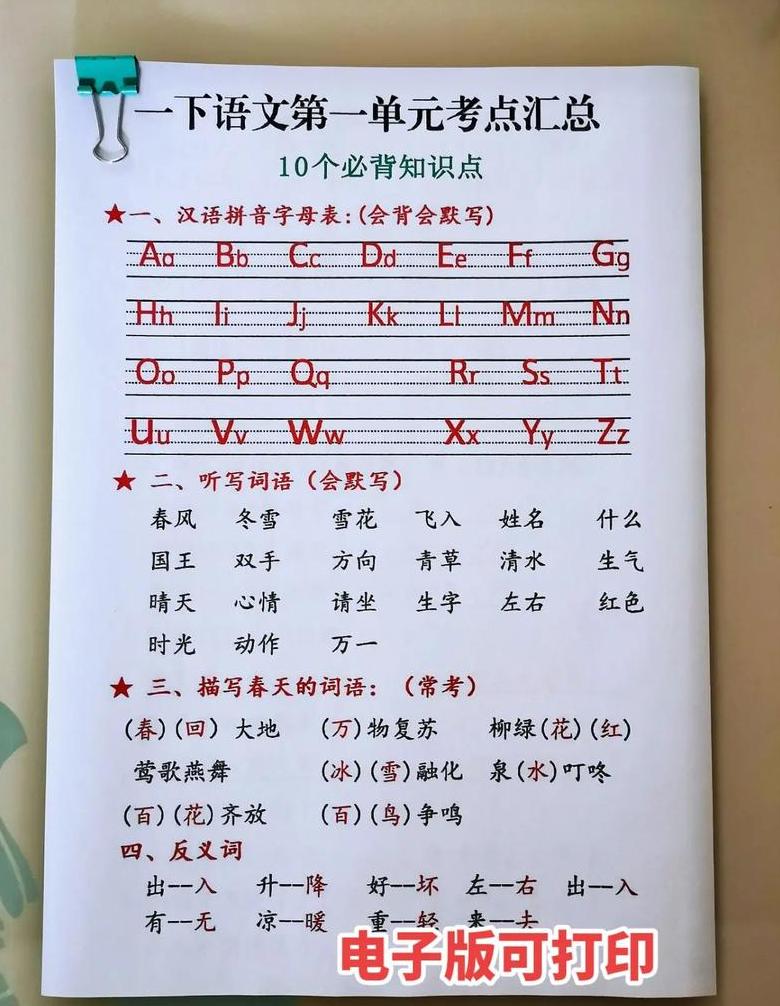 一下语文第一单元考点汇总
10个必背知识点
★一、汉语拼音字母表:(会背会默写)
Aa Bb Cc Dd Ee Ff Gg
Hh Ii Jj Kk Ll Mm Nn
Oo Pp Qq Rr Ss Tt
Uu Vv Ww Xx Yy Zz
★ 二、听写词语（会默写）
春风 冬雪 雪花 飞入 姓名 什么
国王 双手 方向 青草 清水 生气
晴天 心情 请坐 生字 左右 红色
时光 动作 万一
★ 三、描写春天的词语：（常考）
(春)(回) 大地 (万)物复苏 柳绿(花)(红)
莺歌燕舞 (冰)(雪)融化 泉(水)叮咚
(百)(花)齐放 (百)(鸟)争鸣
四、反义词
出——入 升——降 好——坏 左——右 出——入
有——无 凉——暖 重——轻 来——去
电子版可打印